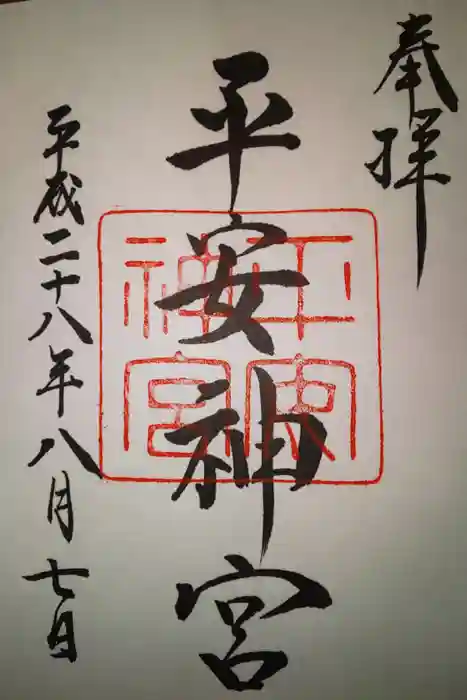 奉拝
平安神宮
平安神宮
平成二十八年八月七日